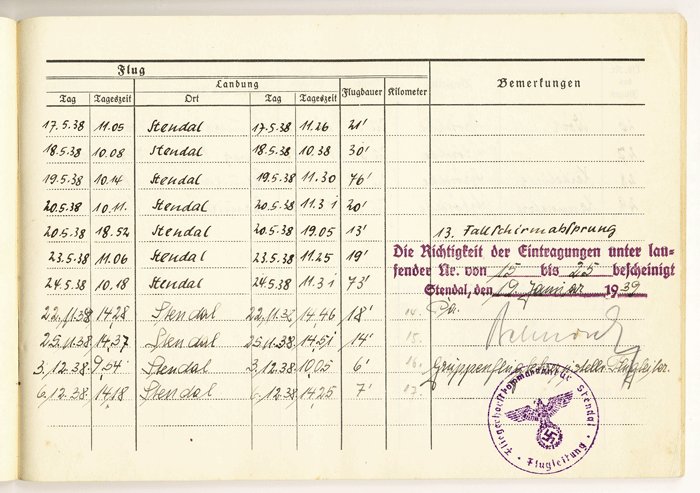 Flug
Landung
Flugdauer Kilometer Bemerkungen
Tag Tageszeit Ort Tag Tageszeit
17.5.38 11.05 Stendal 17.5.38 11.26 21'
18.5.38 10.08 Stendal 18.5.38 10.38 30'
19.5.38 10.14 Stendal 19.5.38 11.30 76'
20.5.38 10.11. Stendal 20.5.38 10.31 20'
20.5.38 18.52 Stendal 20.5.38 19.05 13' 13. Fallschirmabsprung
23.5.38 11.06 Stendal 23.5.38 11.25 19'
24.5.38 10.18 Stendal 24.5.38 11.31 73'
22.11.38 14,28 Stendal 22.11.38 14,46 18' 14.
25.11.38 14,37 Stendal 25.11.38 14,51 14' 15.
3.12.38 9.54 Stendal 3.12.38 10,05 6' 16.
6.12.38 14,18 Stendal 6.12.38 14,25 7' 17.
Die Richtigkeit der Eintragungen unter lau-
fender Nr. von 15 bis 25 bescheinigt
Stendal, den 19. Januar 1939
Fliegerhorstkommandantur Stendal
Flugleitung